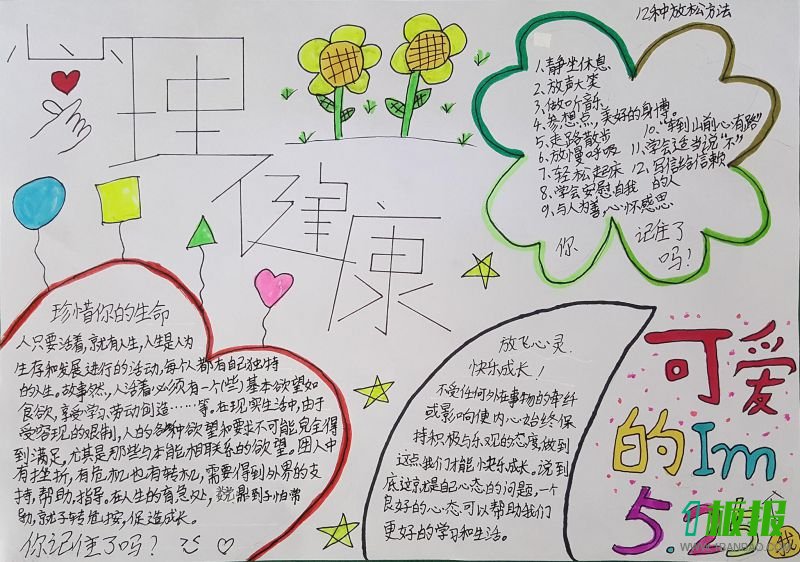 心理
健康
12种放松方法
1、静坐休息
2、放声大笑
3、做听音乐
4、参想点，美好的身博。
5、走路散步
6、放慢呼吸
7、轻松起床
8、学会安慰自我
9、与人为善，心怀感思
10、“车到山前心有路”
11、学会适当说“不”
12、写信给信赖
的人
你 记住了
吗？
珍惜你的生命
人只要活着，就有人生，人生是人为
生存和发展进行的活动，每个人都有自己独特
的人生。故事然，人活着必须有一个(些)基本欲望如
食欲，享受学习，劳动创造……等。在现实生活中，由于
受客现的限制，人的各种欲望和要求不可能完全得
到满足，尤其是那些与本能相联系的欲望。因人中
有挫折，有危机也有转机，需要得到外界的支
持，帮助，指导。在人生的有急处，
助，就 促造成长。
你记住了吗？
放飞心灵，
快乐成长！
不受任何外在事物的牵纤
或影响使内心始终保
持积极与乐观的态度，做到
这点我们才能快乐成长。说到
底这就是自己心态的问题，一个
良好的心态可以帮助我们
更好的学习和生活。
可爱
的Im
5.25
我
板报
WWW.1BANBAO.COM